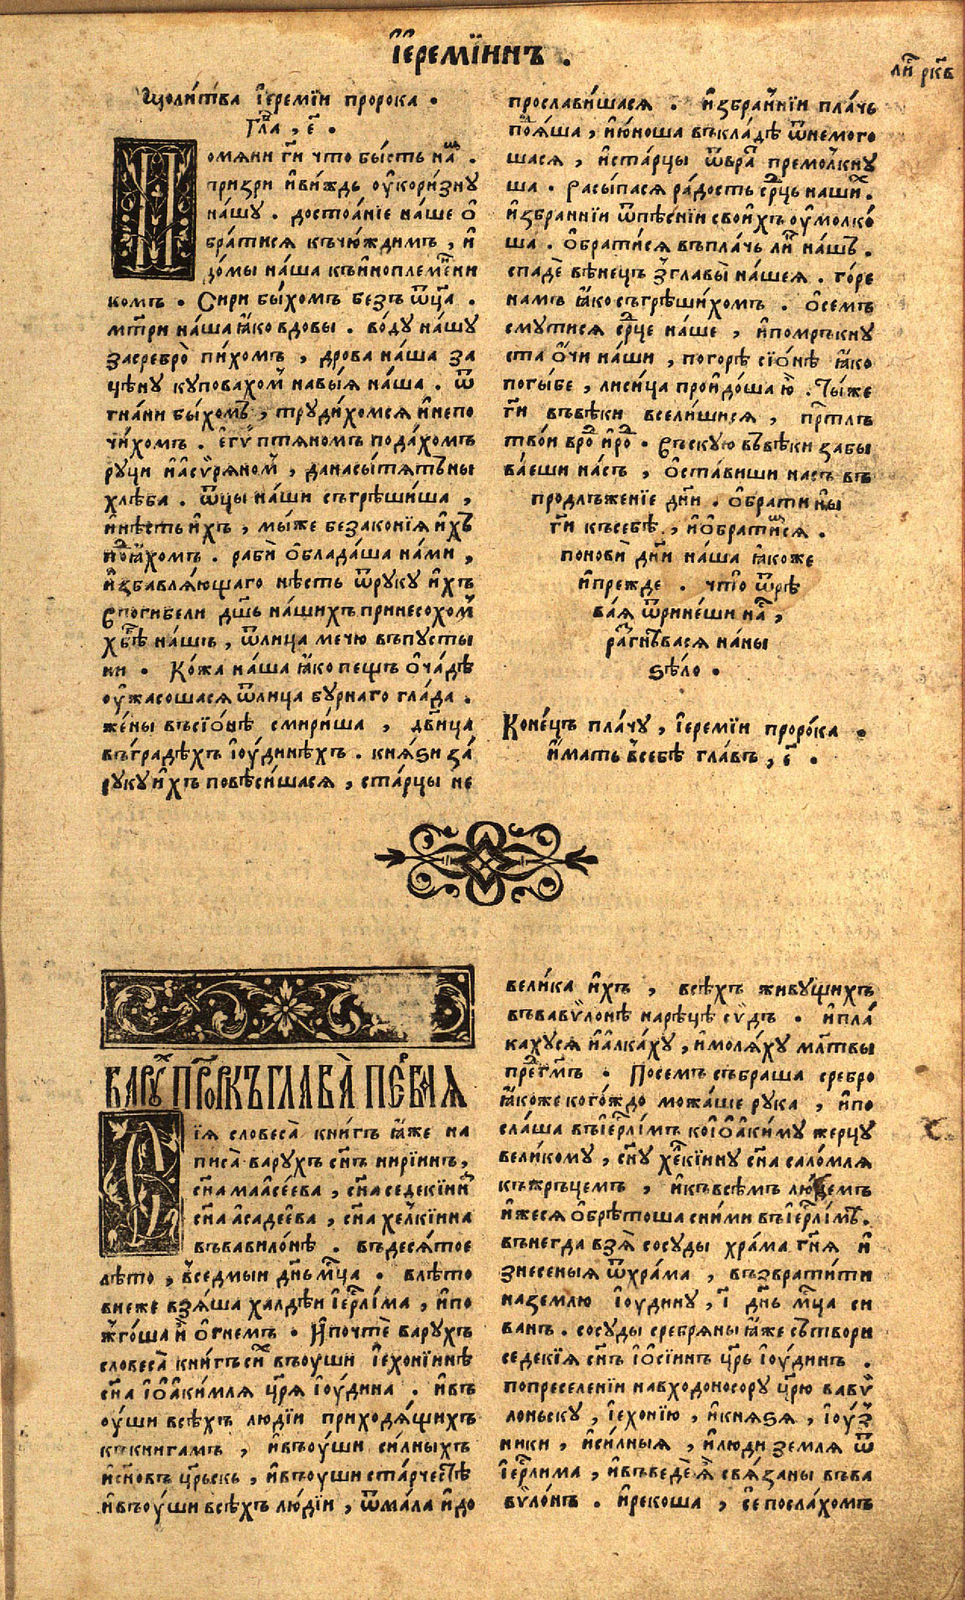 І҆еремїинъ .
ли҃ рк҃в
Мѡли́тва І҆еремїи пророка .
Гла҃ , е҃ .
Помѧни гⷭ҇и что бы́сть на́ⷨ .
призри и҆ви́ждь оу҆кори́зну
на́шу . достоѧ́нїе на́ше ѻ҆
брати́сѧ къчю́ждимъ , и҆
до́мы на́ша къи҆ноплеме́нни
комъ . Сири бы́хомъ безъ ѿц҃а .
мт҃ри на́ша ꙗ҆́ко вдовы̀ . во́ду на́шу
засребро̀ пи́хомъ , дрова на́ша за
цѣ́ну куповахо́мⷨ навы́ѧ на́ша . ѿ
гна́ни бы́хомъ , труди́хомсѧ и҆непо
чи́хомъ . е҆гѵ́птѧномъ пода́хомъ
ру́ци и҆а҆сѵ́рѧномⷨ , данасы́тѧтъны
хлѣ́ба . ѿц҃ы на́ши съгрѣши́ша ,
и҆нѣ́сть и҆́хъ , мы́же безако́нїѧ и҆́хъ
поѧ́хомъ . рабѝ ѻ҆блада́ша на́ми ,
и҆збавлѧ́ющаго нѣ́сть ѿруку и҆́хъ
Спогибели дш҃ь на́шихъ принесохо́мⷨ
хлѣ́бъ на́шъ , ѿлица мечю̀ въпусты
ни . Ко́жа на́ша ꙗ҆́ко пе́щъ ѻ҆чадѣ̀
оу҆жасошасѧ ѿлица бурнаго гла́да .
же́ны въсїѻ́нѣ смири́ша , дв҃ица
въградѣ́хъ і҆оу́динѣхъ . кнѧ́ѕи за́
руку и҆́хъ повѣ́сишасѧ , ста́рцы не
просла́вишасѧ . и҆збра́ннїи пла́чь
поѧ́ша , и҆ю҆́ноша въкла́дѣ ѿнемого
шасѧ , и҆ста́рцы ѿвра́тъ премо́лкну
ша . Расы́пасѧ ра́дость срⷣць на́шиⷯ .
и҆збра́ннїи ѿпѣ́снїи свои́хъ оу҆молко́
ша . ѻ҆брати́сѧ въпла́чь ли́къ на́шъ .
спадѐ вѣне́цъ з҆главы̀ на́шеѧ . го́ре
на́мъ ꙗ҆́ко съгрѣши́хомъ . ѻ҆се́мъ
смути́сѧ срⷣце на́ше , и҆поме́ркну
ста ѻ҆́чи на́ши , погорѣ̀ сїѻ́нѣ ꙗ҆́ко
погы́бе , лиси́ца проидо́ша ю҆̀ . Ты́же
гⷭ҇и въвѣ́ки всели́шисѧ , прⷭ҇тлъ
тво́и вро́ⷣ и҆ро́ⷣ . Въскую въвѣ́ки забы
ва́еши на́съ , ѻ҆ста́виши насъ въ
продлъже́нїе дн҃и . ѻ҆брати ны́
гⷭ҇и късебѣ̀ , и҆ѻ҆брати́мсѧ .
поновѝ дн҃и на́ша ꙗ҆́коже
и҆пре́жде . что́ ѿрѣ
ва́ѧ ѿрине́ши на́съ ,
разгнѣ́васѧ на́ны
ѕѣло̀ .
Коне́цъ пла́чу , І҆еремїи проро́ка .
И҆мать в҆себѣ̀ гла́въ , е҃ .
ВАРꙊХЪ ПРОРОКЪ ГЛАВА̀ ПЕРВАѦ
Сїѧ словеса̀ кни́гъ ꙗ҆́же на
писа̀ вару́хъ сн҃ъ ни́рїинъ ,
сн҃а маа҆се́ева , сн҃а седекі́инъ
сн҃а а҆саде́ева , сн҃а хе́лкїина
въвавило́нѣ . въдесѧ́тое
лѣ́то , в҆се́дмыи дн҃ь мцⷭ҇а . влѣ́то
вне́же взѧ́ша халдѣ́и і҆ерⷭ҇ли́ма , и҆по
ж҆го́ша и҆̀ ѻ҆гне́мъ . И҆почтѐ вару́хъ
словеса̀ кни́гъ си́хъ въоу́ши і҆ехонїинѣ
сн҃а і҆ѻ҆аки́млѧ цр҃ѧ і҆оу́дина . и҆въ
оу҆́ши всѣ́хъ лю́дїи приходѧ́щихъ
къкни́гамъ , и҆въоу́ши си́лныхъ
и҆сн҃о́въ цр҃ьскъ , и҆въоу́ши ста́рчестѣ
и҆въоу́ши всѣ́хъ лю́дїи , ѿма́ла и҆до
вели́ка и҆́хъ , всѣ́хъ живу́щихъ
въвавѵло́нѣ нари́цѣ су́дъ . и҆пла́
кахусѧ и҆а҆лка́ху , и҆молѧ́ху мл҃твы
прⷣегⷭ҇мъ . Посе́мъ събра́ша сребро
ꙗ҆́коже когождо можа́ше рука , и҆по
сла́ша въі҆ерⷭ҇ли́мъ коі҆ѻ҆аки́му жерцу
вели́кому , сн҃у хе́лкїину сн҃а сало́млѧ
къжръце́мъ , и҆къвсѣ́мъ лю́демъ
и҆жесѧ ѻ҆брѣто́ша сни́ми въі҆ерⷭ҇ли́мъ .
вънегда̀ взѧ̀ сосу́ды хра́ма гⷭ҇нѧ и҆
знесе́ныѧ ѿхра́ма , възврати́ти
на зе́млю і҆оу́дину , і҃ дн҃ь мцⷭ҇а си
ва́нъ . сосу́ды сребрѧ́ны ꙗ҆́же сътвори
седекїѧ сн҃ъ і҆ѻ҆сїинъ цр҃ь і҆оу́динъ .
попреселе́нїи навходоно́сору цр҃ю вавѵ
ло́ньску , і҆ехонїю , и҆кнѧ́ѕѧ , і҆оу҆́з
ники , и҆си́лныѧ , и҆лю́ди землѧ̀ ѿ
і҆ерⷭ҇ли́ма , и҆въведѐ ѧ҆̀ свѧ́заны въва
вѵло́нъ . и҆реко́ша , сѐ посла́хомъ